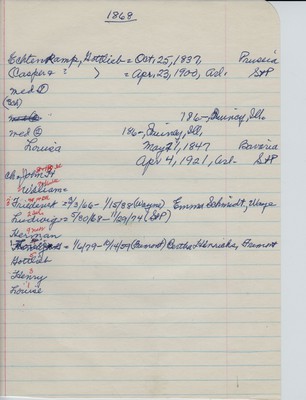 1868
Echtenkamp, Gottlieb = Oct, 25, 1837, Prussia
(Casper & ? ) = Apr, 23, 1900, Arl. S+P
med ①
186-, Quincy, Ill.
med ② 186-, Quincy, Ill,
Louisa May 21, 1847 Bavaria
Apr 4, 1921, Arl. S+P
ch = John H
William =
Friedrich = 2/3/66- 1/15/38 (Wayne) Emma Schmidt, Wayne
Ludwig = 5/30/68- 1/29/74 (S+P)
Herman
= 1/6/79- 2/14/59 (Fremont) Bertha Fremont
Gottlieb
Henry
Louise